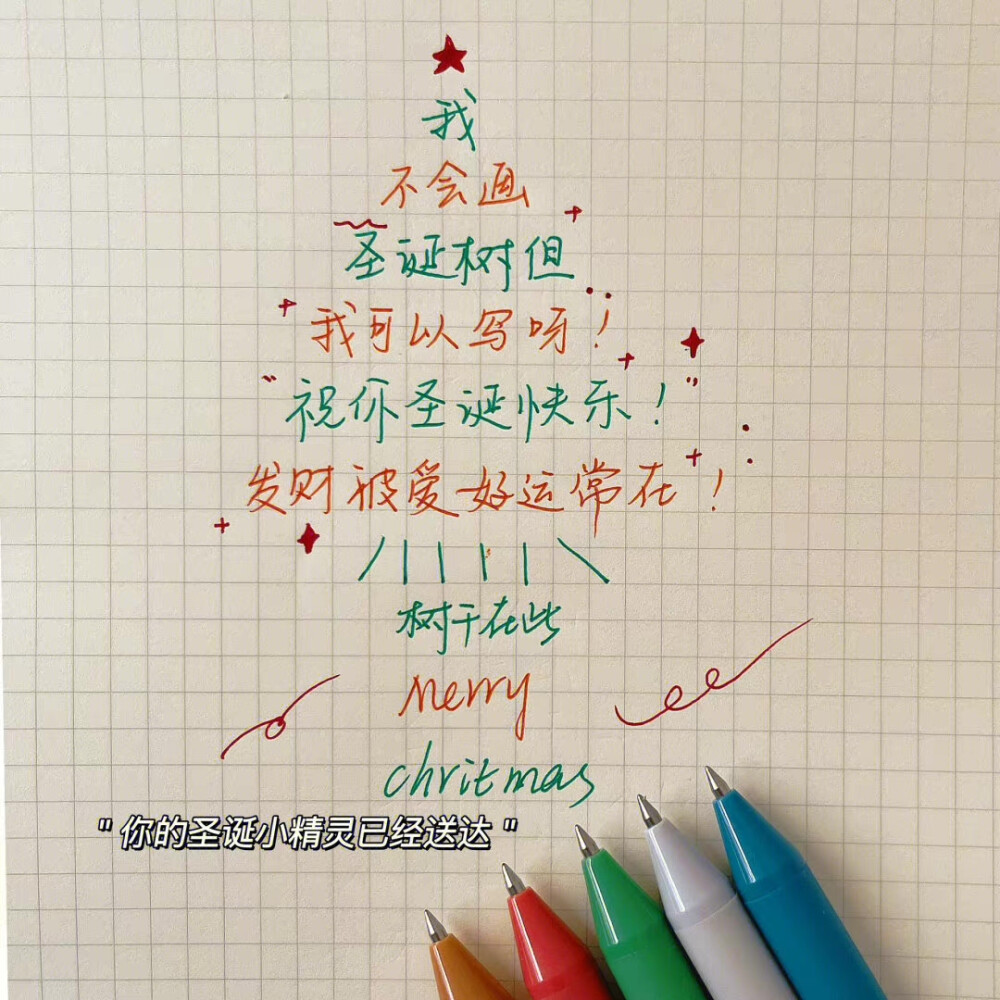 我
不会画
圣诞树但
我可以写呀！
"祝你圣诞快乐！"
发财被爱好运常在！
树干在此
Merry
chritmas
"你的圣诞小精灵已经送达"